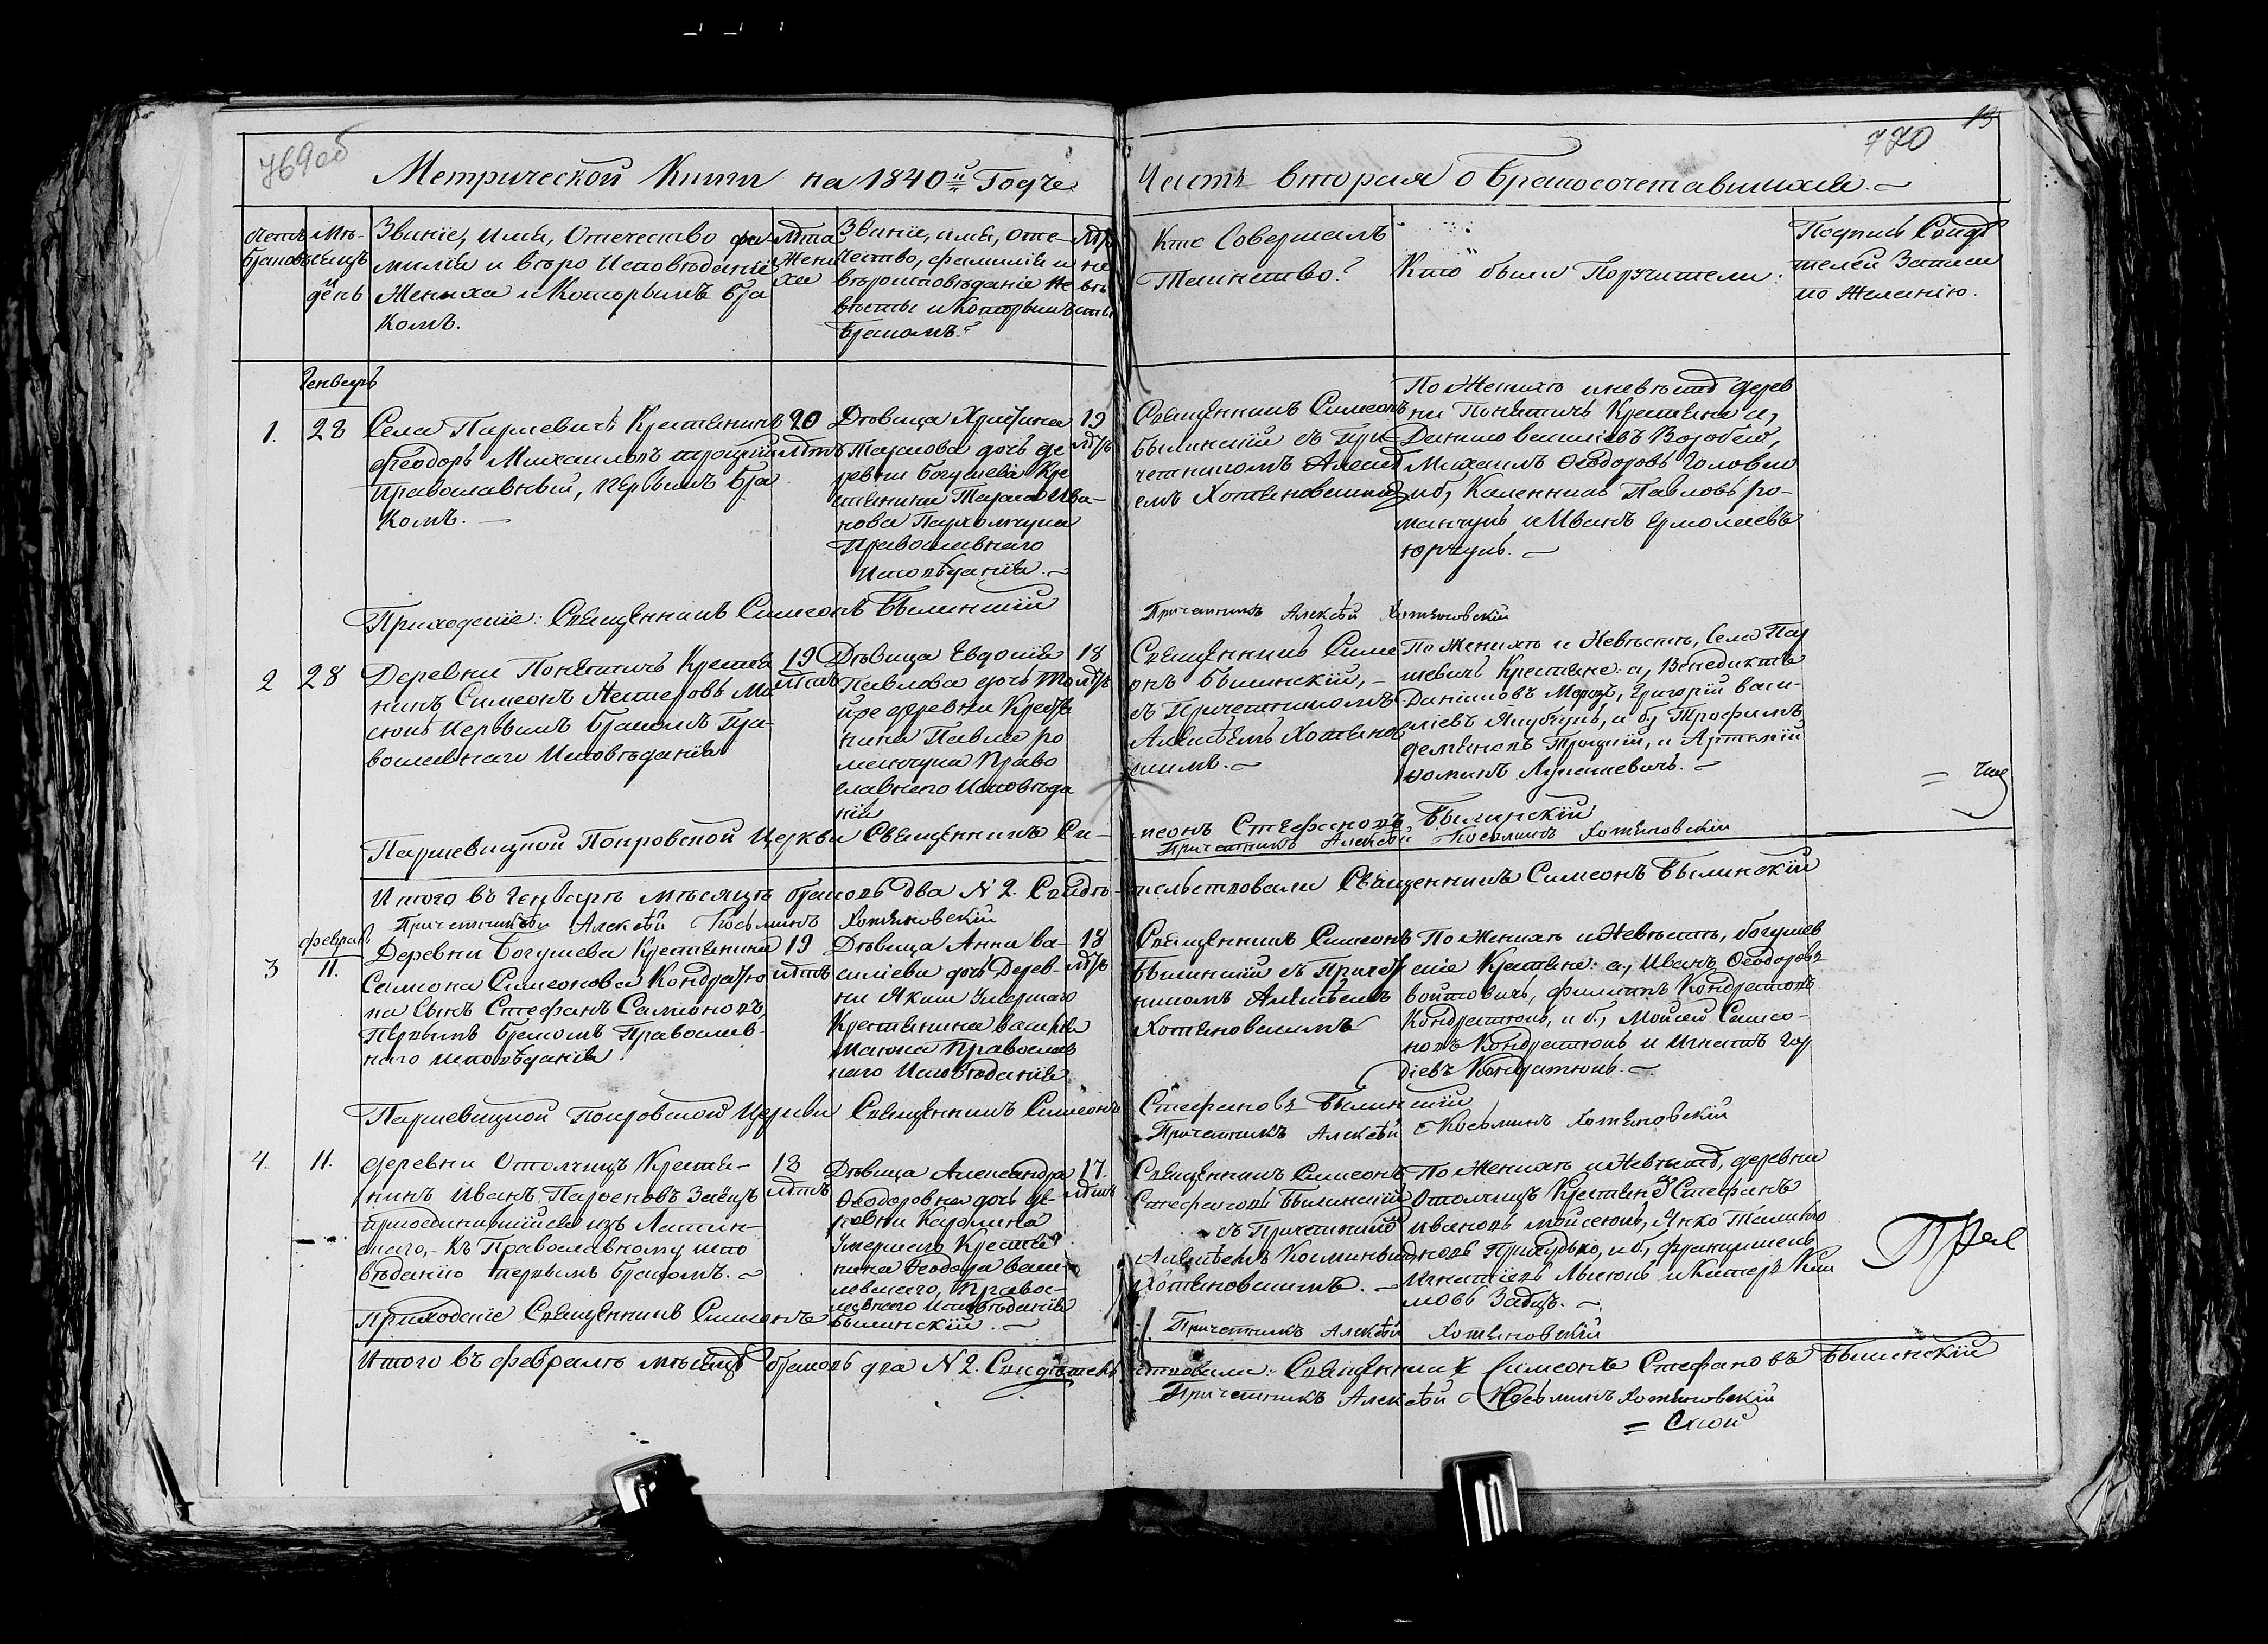 769об
Метрической Книги на 1840й Годъ
770
13
Часть вторая о бракосочетавшихся.
Счетъ браковъ
Мѣсяцъ и день
Званіе, имя, Отечество фа-
милія и вѣро Исповѣданіе
Жениха и Которымъ бра
комъ.
Лѣта
Жени
ха
Званіе, имя, оте-
чество, фамилія и
вѣроисповѣданіе не
вѣсты и Которымъ
бракомъ?
Лѣта
не
вѣ
сты
Кто Совершалъ
Таинство?
Кто были Поручители:
Подпись Свидѣ
телей Записи
по Желанію.
Генварь
1.
28
Села Паршевичь Крестьянинъ
Феодоръ Михаиловъ Троцкій
Православный, первымъ бра
комъ.
20
лѣтъ
Дѣвица Христина
Тарасова дочь де
ревни Богушева Кре
стьянина Тараса Ива-
нова Пархомчука
Православнаго
Исповѣданія.
19
лѣтъ
Священникъ Симеонъ
Былинскій съ При-
четникомъ Алексѣ
емъ Хотяновскимъ
По Женихѣ и невѣстѣ дерев
ни Понятичь Крестьяне а,
Данило Василіевъ Воробей,
Михаилъ Ѳеодоровъ Головко
и б, Каленникъ Павловъ Ро-
манчукъ и Иванъ Ермолаевъ
Юрчукъ.
Приходскіе: Священникъ Симеонъ Былинскій
Причетникъ Алексѣй Хотяновскій
2
28
Деревни Понятичь Крестья
нинъ Симеонъ Нестеровъ Ма
сюкъ Первымъ бракомъ Пра-
вославнаго Исповѣданія
19
лѣтъ
Дѣвица Евдокія
Павлова дочь То
йже деревни Крестья
нина Павла Ро
манчука Право
славнаго Исповѣда
нія
18
лѣтъ
Священникъ Симе
онъ Былинскій,
съ Причетникомъ
Алексѣемъ Хотянов
скимъ.
По Женихѣ и Невѣстѣ, Села Пар
шевичь Крестьяне: а, Венедиктъ
Даниловъ Морозъ, Григорій Васи-
ліевъ Якубчукъ, и б, Трофимъ
Деміановъ Троцкій, и Артемій
Фоминъ Лукашевичь.
Паршевицкой Покровской Церкви Священникъ Си-
меонъ Стефановъ Былинскій
Причетникъ Алексѣй Косьминъ Хотяновскій
Итого въ Генварѣ мѣсяцѣ браковъ два N 2. Свидѣ-
тельствовали Священникъ Симеонъ Былинскій
Причетникъ Алексѣй Косьминъ Хотяновскій
Февраль
3
11.
Деревни Богушева Крестьянина
Самсона Симеонова Кондратю
ка Сынъ Стефанъ Самсоновъ
Первымъ бракомъ Православ-
наго исповѣданія
19
лѣтъ
Дѣвица Анна Ва-
силіева дочь Дерев-
ни Якши Умершаго
Крестьянина Василія
Масюка Православ
наго Исповѣданія
18
лѣтъ
Священникъ Симеонъ
Былинскій съ Причет
никомъ Алексѣемъ
Хотяновскимъ
По Женихѣ и Невѣстѣ, Богушев
скіе Крестьяне: а, Иванъ Ѳеодоровъ
Войтовичь, Филиппъ Кондратовъ
Кондратюкъ, и б, Мойсей Самсо-
новъ Кондратюкъ и Игнатъ Гор
діевъ Кондратюкъ.
Паршевицкой Покровской Церкви Священникъ Симеонъ
Стефановъ Былинскій
Причетникъ Алексѣй Косьминъ Хотяновскій
4.
11.
Деревни Отолчицъ Крестья-
нинъ Иванъ Парѳеновъ Заецъ
присоединившійся изъ Латин-
скаго, къ Православному испо
вѣданію первымъ бракомъ.
18
лѣтъ
Дѣвица Александра
Ѳеодоровна дочь де-
ревни Каролина
Умершаго Крестья
нина Ѳеодора
Правос-
лавнаго Исповѣданія
17.
лѣтъ
Священникъ Симеонъ
Стефановъ Былинскій
съ Причетникомъ
Алексѣемъ Косминымъ
Хотяновскимъ.
По Женихѣ и Невѣстѣ, деревни
Отолчицъ Крестьяне Стефанъ
Ивановъ Мойсеюкъ, Янко
и б, Францишекъ
Игнатіевъ
Приходскіе Священникъ Симеонъ Былинскій.
Причетникъ Алексѣй Хотяновскій
Итого въ Февралѣ мѣсяцѣ браковъ два N 2. Свидѣтель
ствовали: Священникъ Симеонъ Стефановъ Былинскій
Причетникъ Алексѣй Косьминъ Хотяновскій